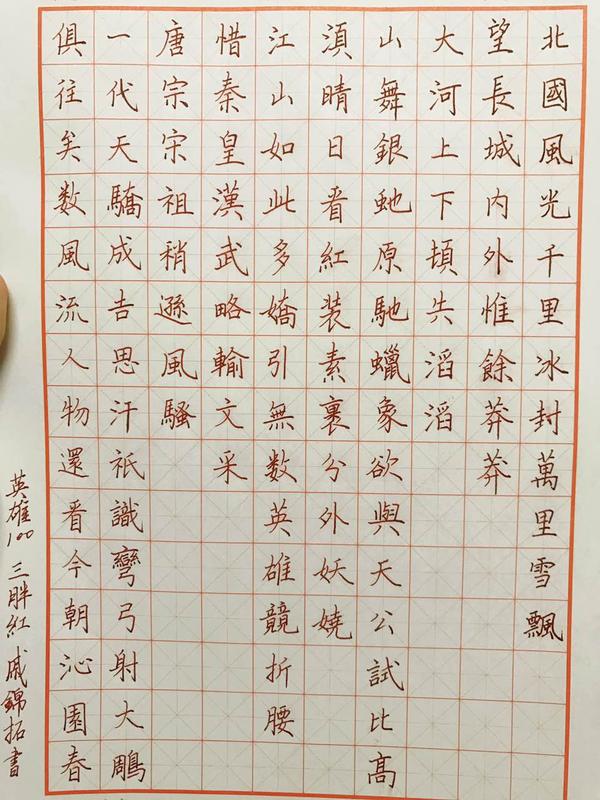 北國風光千里冰封萬里雪飄
望長城内外惟餘莽莽
大河上下頓失滔滔
山舞銀虵原馳蠟象欲與天公試比髙
湏晴日看紅装素裹分外妖嬈
江山如此多嬌引無数英雄競折腰
惜秦皇漢武略輸文采
唐宗宋祖稍遜風騷
一代天驕成吉思汗祇識彎弓射大鵰
俱往矣数風流人物還看今朝沁園春
英雄100 三胖紅 戚錦拓書